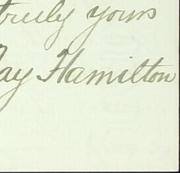 truly yours
Jay Hamilton